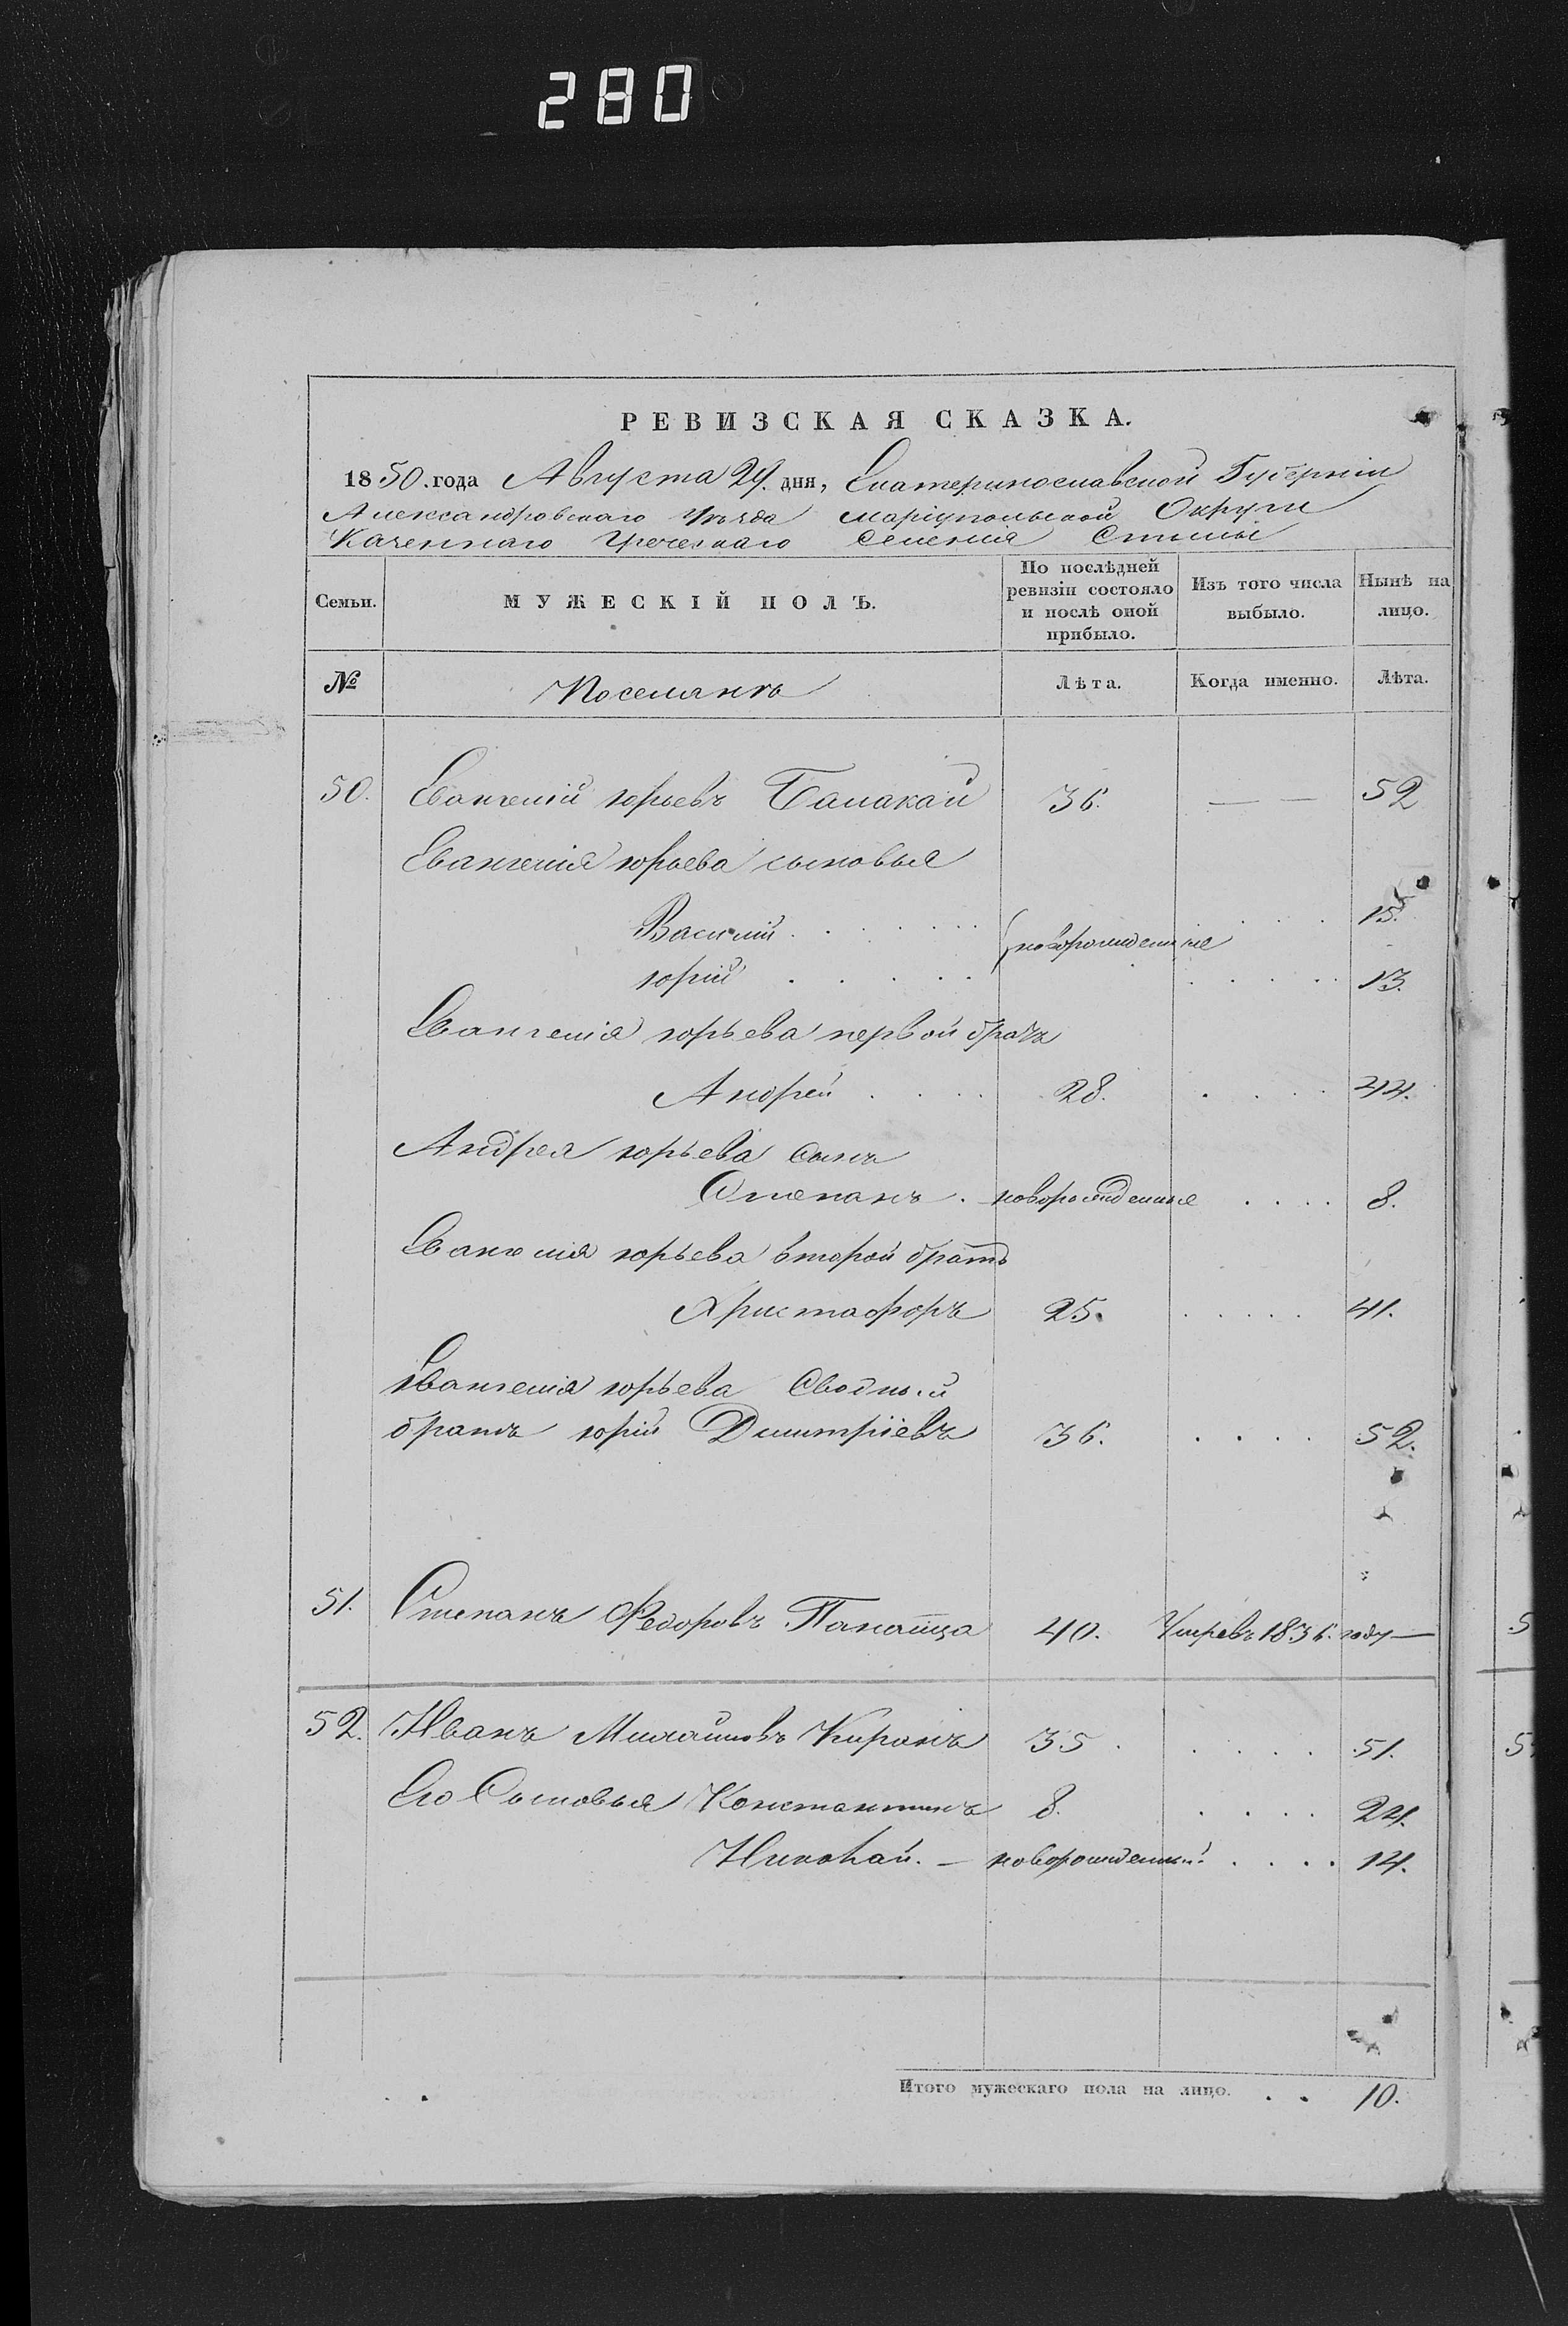 280
РЕВИЗСКАЯ СКАЗКА.
1850. года Августа 29. дня, Екатеринославской Губерніи
Александровскаго Уѣзда Маріупольской Округи
Казеннаго Греческаго Селенія Стылы
Семьи. МУЖЕСКІЙ ПОЛЪ. По послѣдней ревизіи состояло и послѣ оной прибыло. Изъ того числа выбыло. Нынѣ на лицо.
№ Поселянъ Лѣта. Когда именно. Лѣта.
50. Евангелій Юрьевъ 36. — — 52
Евангелія Юрьева сыновья
Василій новорожденные 15.
Юрій 13.
Евангелія Юрьева первой братъ
Андрей 28. 44.
Андрея Юрьева сынъ
Степанъ. новорожденные 8.
Евангелія Юрьева второй братъ
Христофоръ 25. 41.
Евангелія Юрьева Сводный
братъ Юрій Дмитріевъ 36. 52.
51. Степанъ Федоровъ 40. Умре въ 1836. году —
52. Иванъ Михайловъ Киронъ 35. 51.
Его Сыновья Константинъ 8. 24.
Николай. — новорожденный. 14.
Итого мужескаго пола на лицо. 10.